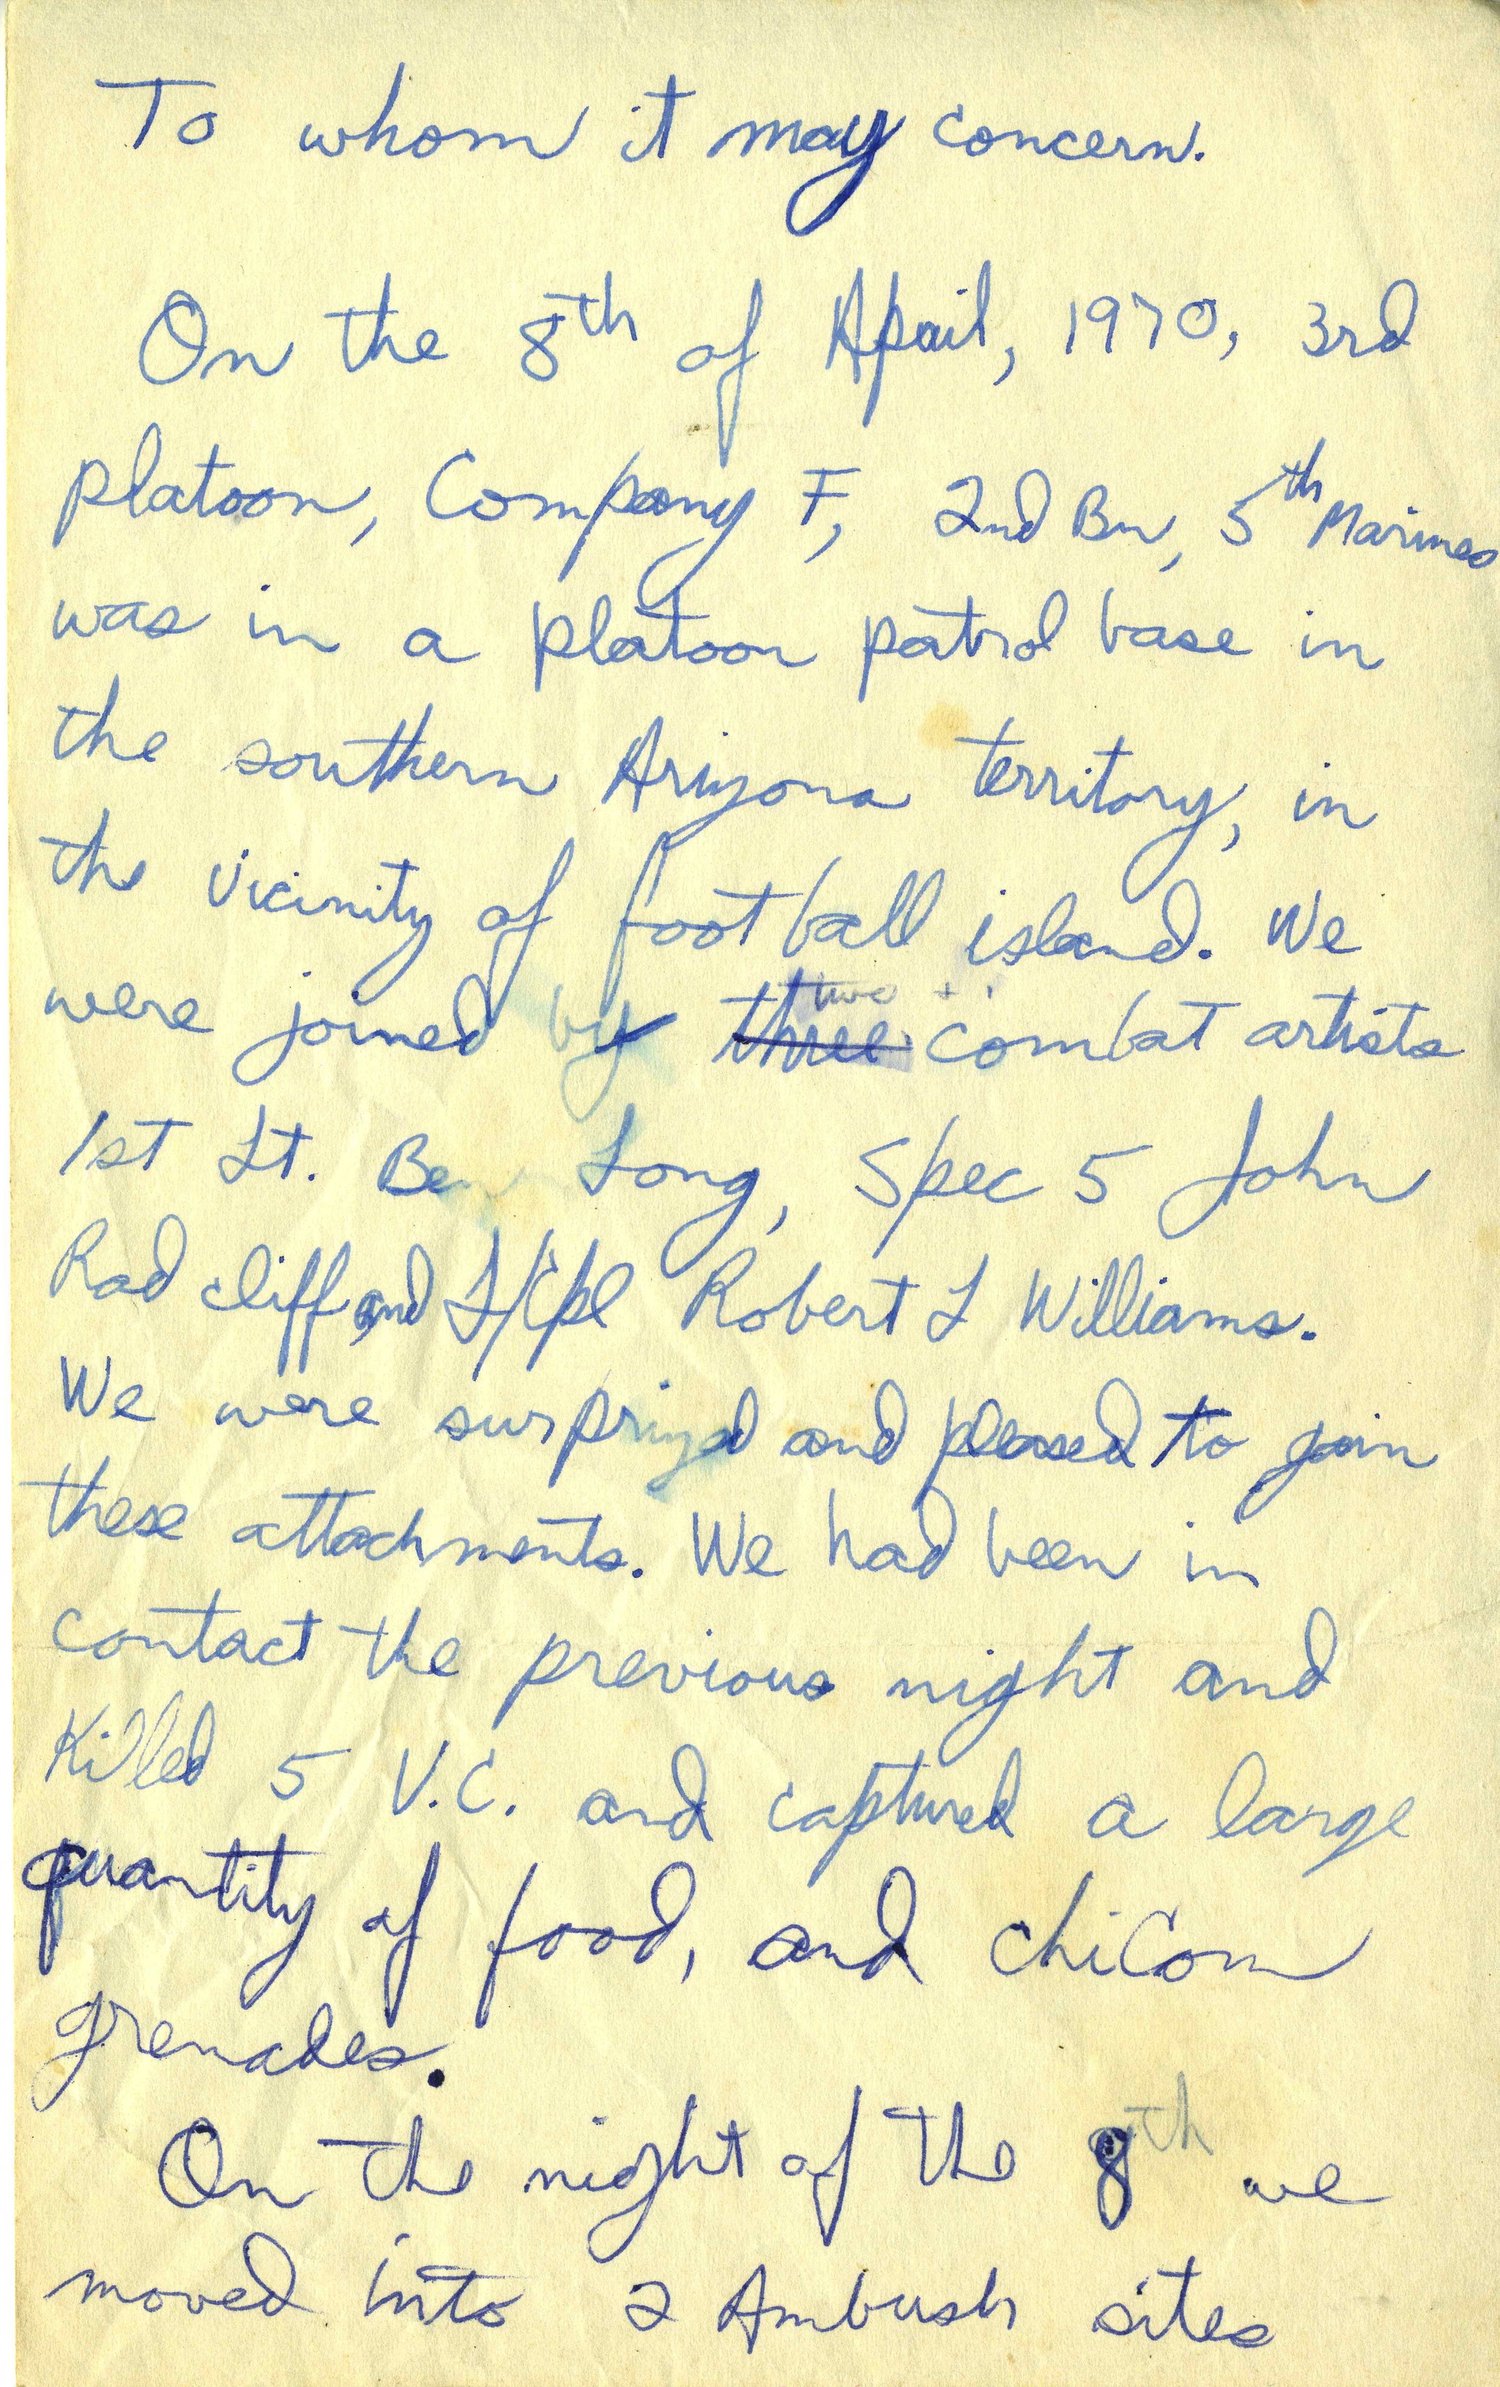 To whom it may concern.
On the 8th of April, 1970, 3rd
platoon, Company F, 2nd Bn, 5th Marines
was in a platoon patrol base in
the southern Arizona territory, in
the vicinity of football island. We
two +
were joined by three combat artists
1st Lt. Ben Long, Spec 5 John
Radcliff and L/Cpl Robert L Williams.
We were surprized and pleased to join
these attachments. We had been in
contact the previous night and
Killed 5 V.C. and captured a large
quantity of food, and chiCom
grenades.
On the night of the 8th we
moved into 2 Ambush sites